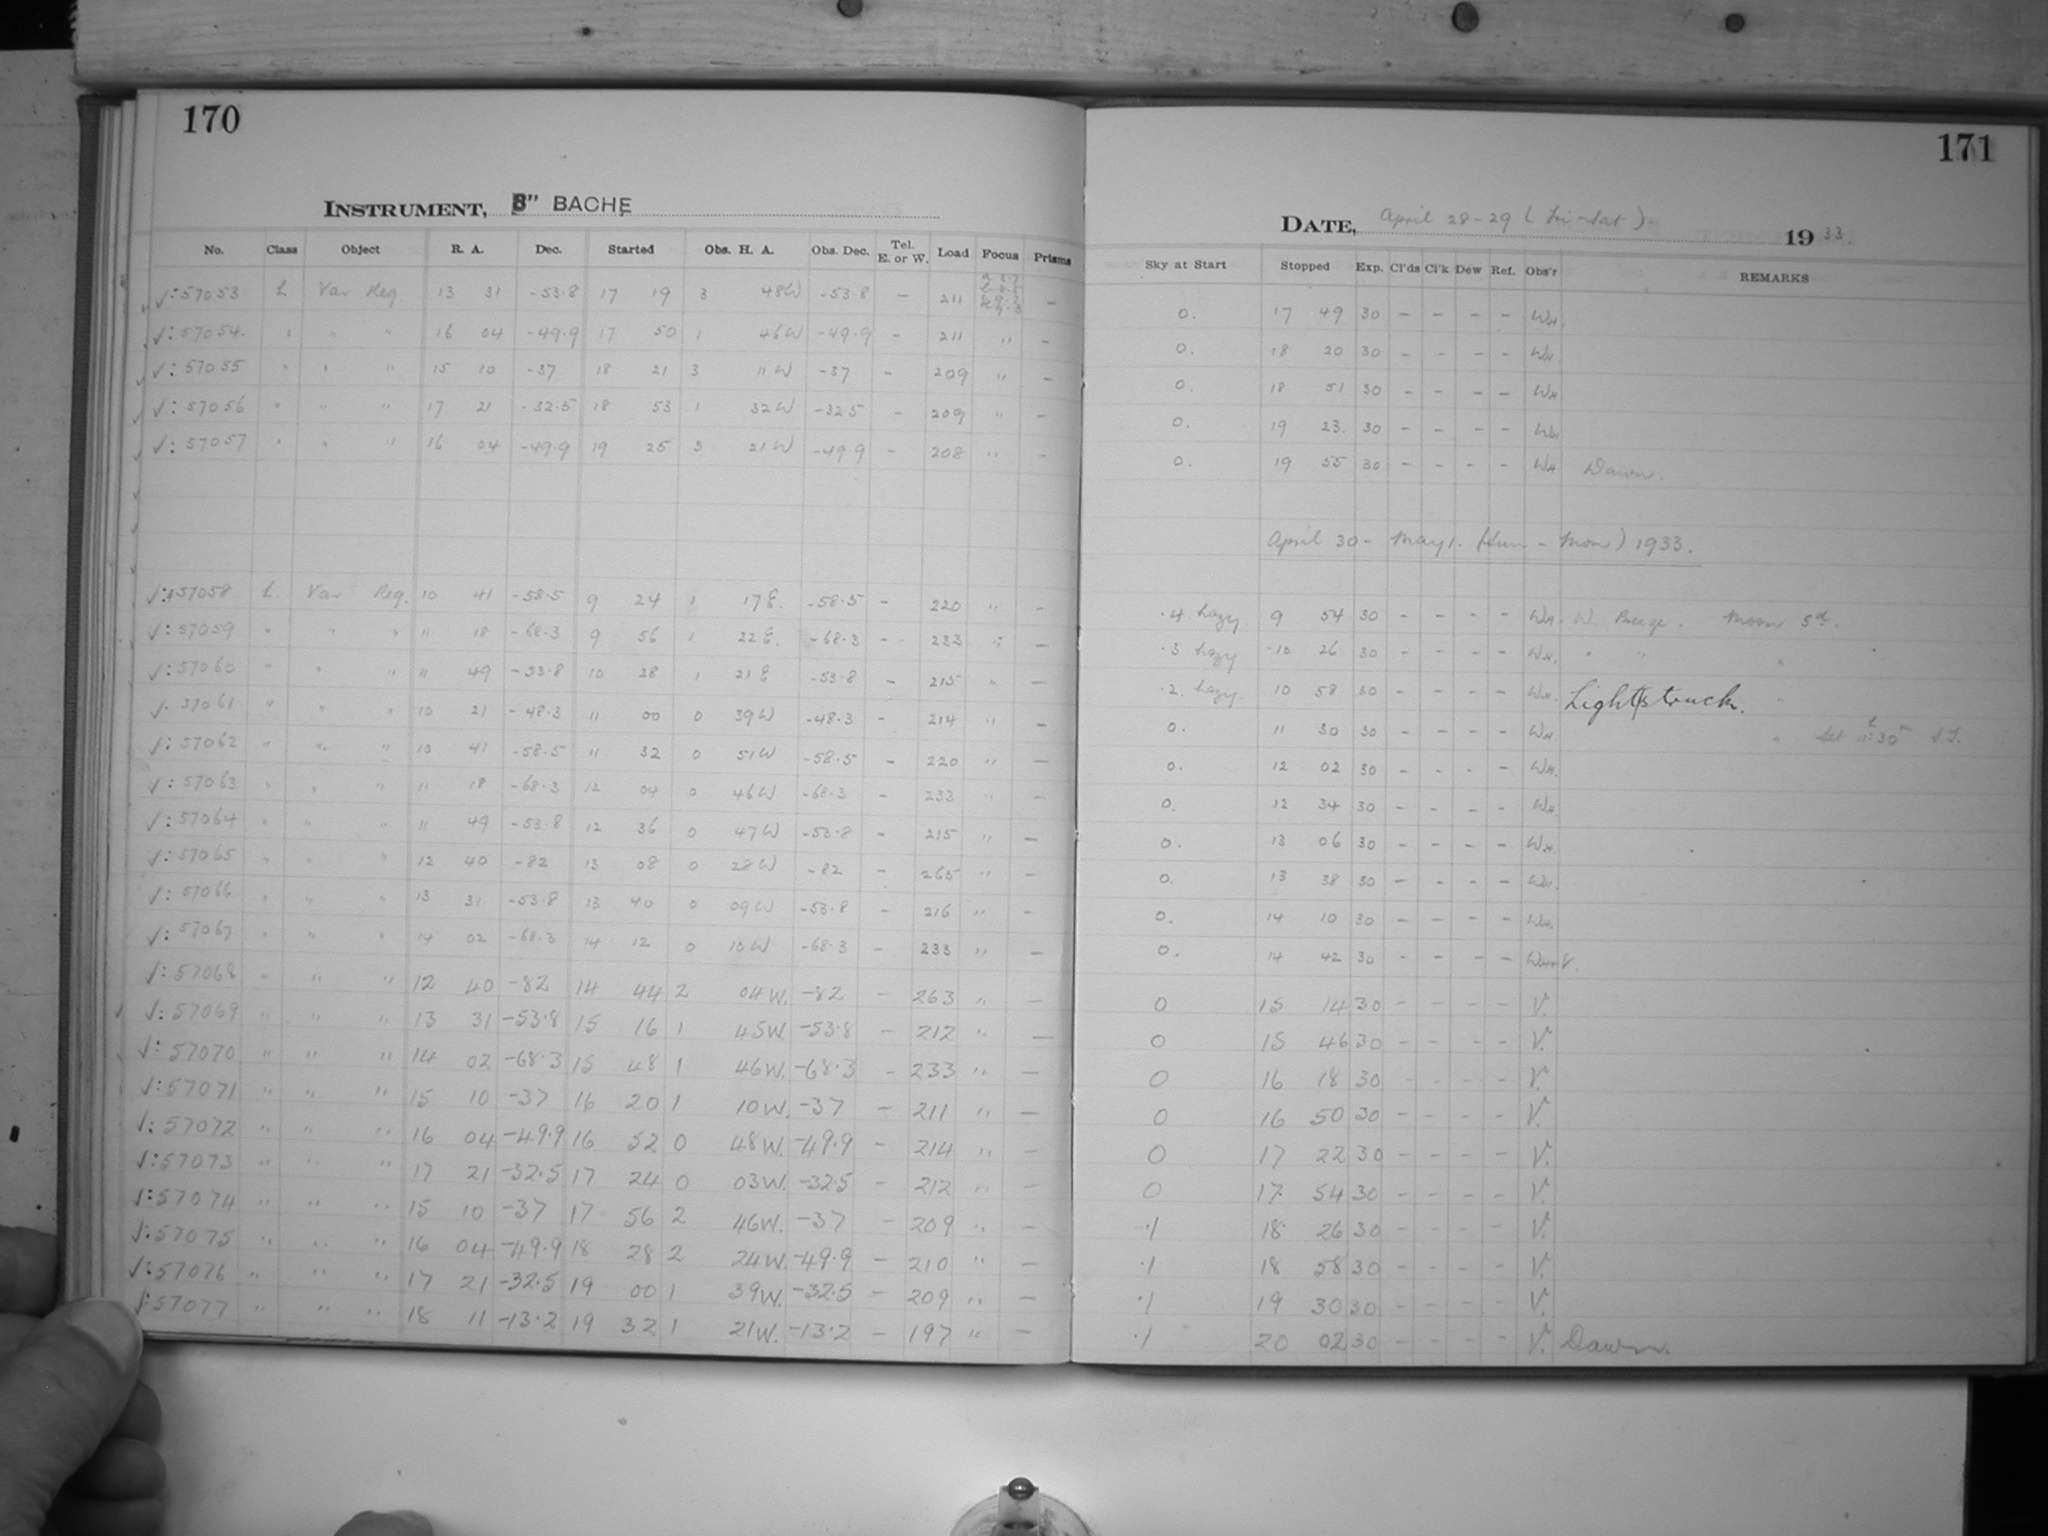 170
INSTRUMENT, 8" BACHE
No. Class Object R. A. Dec. Started Obs. H. A. Obs. Dec. Tel. E. or W. Load Focus Prisms
√: 57053 L Var Reg. 13 31 -53.8 17 19 3 48W -53.8 - 211 -
√: 57054. " " " 16 04 -49.9 17 50 1 46W -49.9 - 211 " -
√: 57055 " " " 15 10 -37 18 21 3 11W -37 - 209 " -
√: 57056 " " " 17 21 -32.5 18 53 1 32W -32.5 - 209 " -
√: 57057 " " " 16 04 -49.9 19 25 3 21W -49.9 - 208 " -
√: 57058 L Var Reg. 10 41 -58.5 9 24 1 17E. -58.5 - 220 " -
√: 57059 " " " 11 18 -68.3 9 56 1 22E. -68.3 - 233 " -
√: 57060 " " " 11 49 -53.8 10 28 1 21E -53.8 - 215 " -
√. 57061 " " " 10 21 -48.3 11 00 0 39W -48.3 - 214 " -
√: 57062 " " " 10 41 -58.5 11 32 0 51W -58.5 - 220 " -
√: 57063 " " " 11 18 -68.3 12 04 0 46W -68.3 - 233 " -
√: 57064 " " " 11 49 -53.8 12 36 0 47W -53.8 - 215 " -
√: 57065 " " " 12 40 -82 13 08 0 28W -82 - 265 " -
√: 57066 " " " 13 31 -53.8 13 40 0 09W -53.8 - 216 " -
√: 57067 " " " 14 02 -68.3 14 12 0 10W -68.3 - 233 " -
√: 57068 " " " 12 40 -82 14 44 2 04W. -82 - 263 " -
√: 57069 " " " 13 31 -53.8 15 16 1 45W. -53.8 - 212 " -
√: 57070 " " " 14 02 -68.3 15 48 1 46W. -68.3 - 233 " -
√: 57071 " " " 15 10 -37 16 20 1 10W. -37 - 211 " -
√: 57072 " " " 16 04 -49.9 16 52 0 48W. -49.9 - 214 " -
√: 57073 " " " 17 21 -32.5 17 24 0 03W. -32.5 - 212 " -
√: 57074 " " " 15 10 -37 17 56 2 46W. -37 - 209 " -
√: 57075 " " " 16 04 -49.9 18 28 2 24W. -49.9 - 210 " -
√: 57076 " " " 17 21 -32.5 19 00 1 39W. -32.5 - 209 " -
√: 57077 " " " 18 11 -13.2 19 32 1 21W. -13.2 - 197 " -
171
DATE, April 28-29 (Fri-Sat). 1933.
Sky at Start Stopped Exp. Cl'ds Cl'k Dew Ref. Obs'r REMARKS
0. 17 49 30 - - - - WH.
0. 18 20 30 - - - - WH
0. 18 51 30 - - - - WH
0. 19 23. 30 - - - - WH
0. 19 55 30 - - - - WH Dawn.
April 30 - May 1. (Sun - Mon) 1933.
.4 hazy 9 54 30 - - - - WH W. Breeze. Moon 5d.
.3 hazy 10 26 30 - - - - WH. " " "
.2. hazy. 10 58 30 - - - - WH. Lightstruck. "
0. 11 30 30 - - - - WH. " Set 11h 30m S.T.
0. 12 02 30 - - - - WH.
0. 12 34 30 - - - - WH
0. 13 06 30 - - - - WH.
0. 13 38 30 - - - - WH.
0. 14 10 30 - - - - WH.
0. 14 42 30 - - - - V.
0 15 14 30 - - - - V.
0 15 46 30 - - - - V.
0 16 18 30 - - - - V.
0 16 50 30 - - - - V.
0 17 22 30 - - - - V.
0 17. 54 30 - - - - V.
.1 18. 26 30 - - - - V.
.1 18 58 30 - - - - V.
.1 19 30 30 - - - - V.
.1 20 02 30 - - - - V. Dawn.